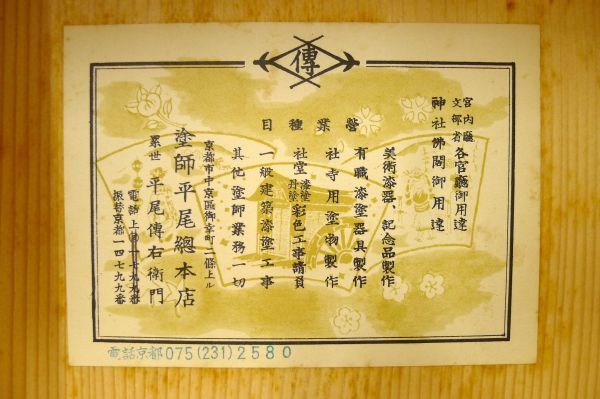 傳
宮内廳
文部省
各官廳御用達
神社佛閣御用達
營業種目
美術漆器、記念品製作
有職漆塗器具製作
社寺用塗物製作
社堂漆塗丹塗彩色工事請負
一般建築漆塗工事
其他塗師業務一切
京都市中京區御幸町二條上ル
塗師平尾總本店
累世 平尾傳右衛門
振替京都一四七九九番
電話京都075(231)2580